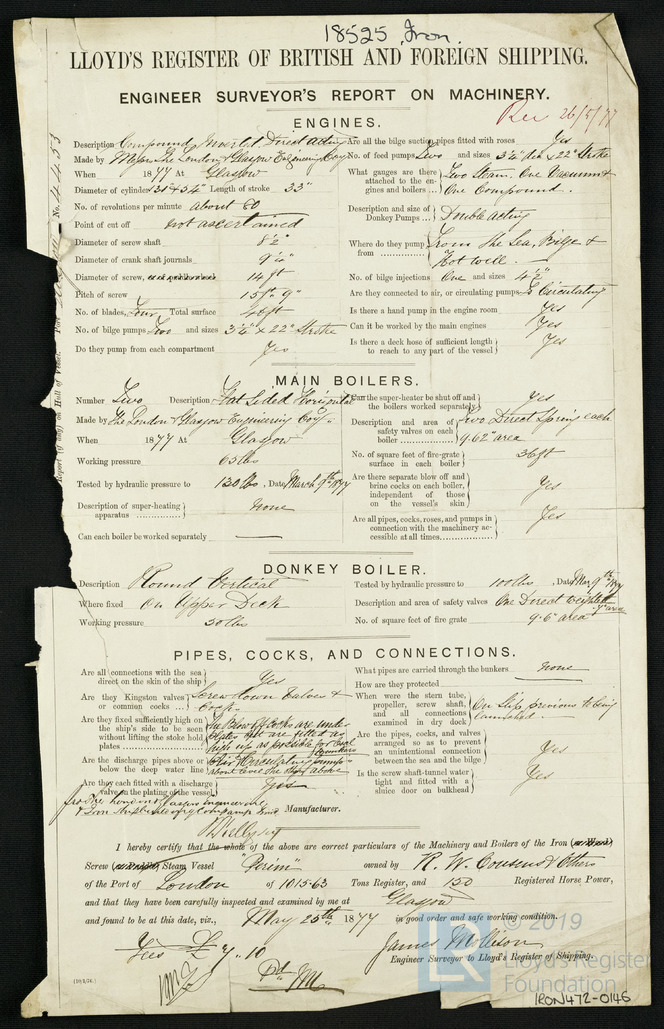 18525 Iron.
LLOYD'S REGISTER OF BRITISH AND FOREIGN SHIPPING.
ENGINEER SURVEYOR'S REPORT ON MACHINERY.
Rec 26/5/77
ENGINES.
Description Compound, Inverted, Direct Acting
Made by Messrs The London & Glasgow Engineering Coy
When 1877 At Glasgow
Diameter of cylinders & 54" Length of stroke 33"
No. of revolutions per minute about 80
Point of cut off not ascertained
Diameter of screw shaft 8½"
Diameter of crank shaft journals 9½"
Diameter of screw, 14 ft
Pitch of screw 15 ft 9"
No. of blades, Four Total surface 46 ft
No. of bilge pumps Two and sizes 3¼" x 22" Stroke
Do they pump from each compartment Yes
Are all the bilge suction pipes fitted with roses Yes
No. of feed pumps Two and sizes 3¼" dia x 22" Stroke
What gauges are there attached to the engines and boilers Two Steam. One Vacuum & One Compound.
Description and size of Donkey Pumps Double acting
Where do they pump from From the Sea, Bilge & Hot well.
No. of bilge injections One and sizes 4½"
Are they connected to air, or circulating pumps To Circulating
Is there a hand pump in the engine room Yes
Can it be worked by the main engines Yes
Is there a deck hose of sufficient length to reach to any part of the vessel Yes
MAIN BOILERS.
Number Two Description Flat Sided Horizontal
Made by The London & Glasgow Engineering Coy
When 1877 At Glasgow
Working pressure 65 lbs
Tested by hydraulic pressure to 130 lbs, Date March 9th 1877
Description of super-heating apparatus None
Can each boiler be worked separately
Can the super-heater be shut off and the boilers worked separately Yes
Description and area of safety valves on each boiler Two Direct Spring each 9.62" area
No. of square feet of fire-grate surface in each boiler 36 ft
Are there separate blow off and brine cocks on each boiler, independent of those on the vessel's skin Yes
Are all pipes, cocks, roses, and pumps in connection with the machinery accessible at all times Yes
DONKEY BOILER.
Description Round Vertical
Where fixed On Upper Deck
Working pressure 50 lbs
Tested by hydraulic pressure to 100 lbs, Date Mar 9th 1877
Description and area of safety valves One Direct weighted 7" area
No. of square feet of fire grate 9.6" area
PIPES, COCKS, AND CONNECTIONS.
Are all connections with the sea direct on the skin of the ship Yes
Are they Kingston valves or common cocks Screw down Valves & Cock.
Are they fixed sufficiently high on the ship's side to be seen without lifting the stoke hold plates The Blow off Cocks are under plates but are fitted as high up as possible for
Are the discharge pipes above or below the deep water line
Are they each fitted with a discharge valve on the plating of the vessel Yes
What pipes are carried through the bunkers None
How are they protected
When were the stern tube, propeller, screw shaft, and all connections examined in dry dock On Slip previous to being launched.
Are the pipes, cocks, and valves arranged so as to prevent an unintentional connection between the sea and the bilge Yes
Is the screw shaft-tunnel water tight and fitted with a sluice door on bulkhead Yes
for The London & Glasgow Engineering & Iron Shipbuilding Company Limd
Manufacturer.
I hereby certify that the whole of the above are correct particulars of the Machinery and Boilers of the Iron
Screw Steam Vessel "Perim" owned by R. W. Cousens & Others
of the Port of London of 1015.63 Tons Register, and 150 Registered Horse Power,
and that they have been carefully inspected and examined by me at Glasgow
and found to be at this date, viz., May 25th 1877 in good order and safe working condition.
James Mollison
Engineer Surveyor to Lloyd's Register of Shipping.
© 2019
LR
Lloyd's Register
Foundation
IRON472-0146